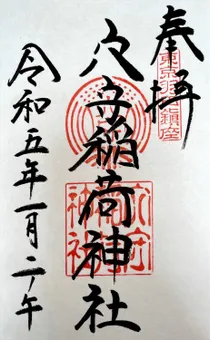 奉拝
東京羽田鎮座
穴守稲荷神社
令和五年一月二ノ午